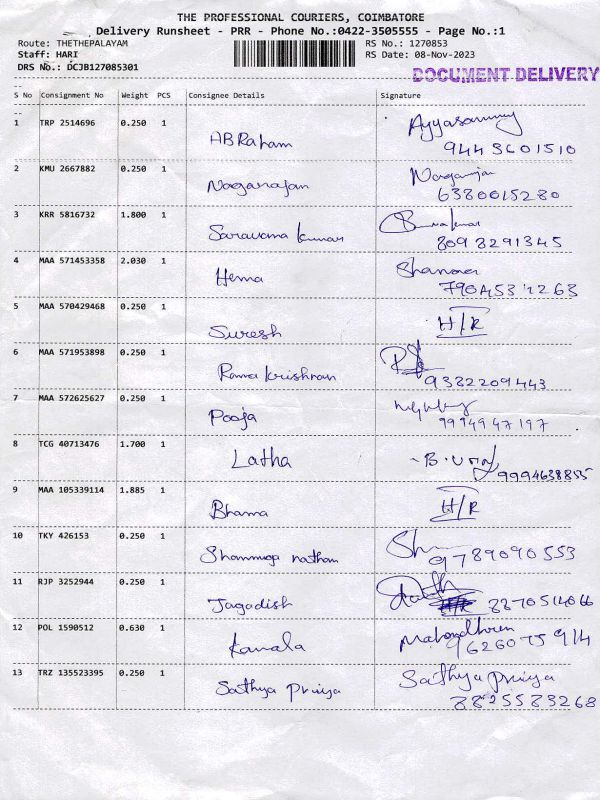 THE PROFESSIONAL COURIERS, COIMBATORE
Delivery Runsheet - PRR - Phone No.:0422-3505555 - Page No.:1
Route: THETHEPALAYAM RS No.: 1270853
Staff: HARI RS Date: 08-Nov-2023
DRS No.: DCJB127085301
DOCUMENT DELIVERY
S No Consignment No Weight PCS Consignee Details Signature
1 TRP 2514696 0.250 1 ABRaham Ayyasammy
9443601510
2 KMU 2667882 0.250 1 Naganajan Naganajan
6380015280
3 KRR 5816732 1.800 1 Saravana kumar
8098291345
4 MAA 571453358 2.030 1 Hema
7904531263
5 MAA 570429468 0.250 1 Suresh H/R
6 MAA 571953898 0.250 1 Rama krishnan
9382209443
7 MAA 572625627 0.250 1 Pooja
9994947197
8 TCG 40713476 1.700 1 Latha
9994638855
9 MAA 105339114 1.885 1 Bhama H/R
10 TKY 426153 0.250 1 Shanmuga natham
9789090553
11 RJP 3252944 0.250 1 Jagadish
8870514066
12 POL 1590512 0.630 1 Kamala
9626075914
13 TRZ 135523395 0.250 1 Sathya Priya Sathya priya
8825583268